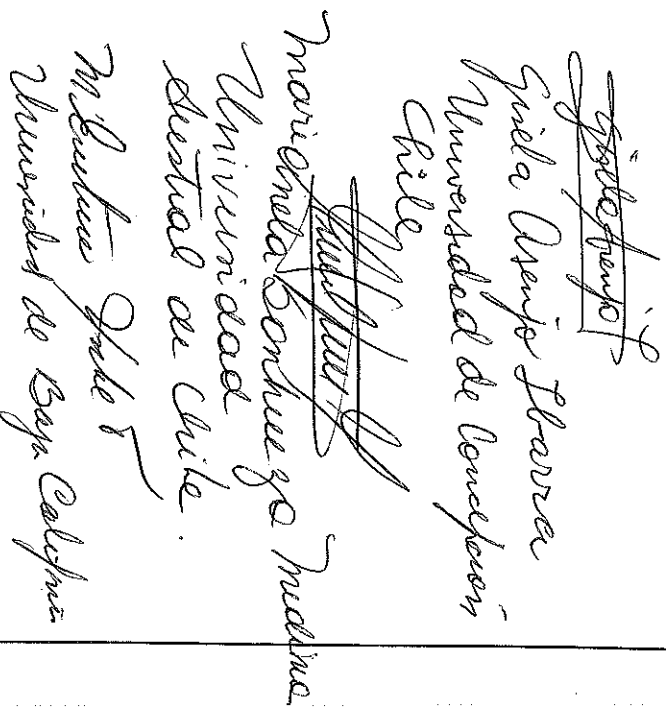 Gisela Asenjo
Gisela Asenjo Ibarra
Universidad de Concepción
Chile
Marianela Sanhueza Medina
Universidad
Austral de Chile.
Universidad de Baja California